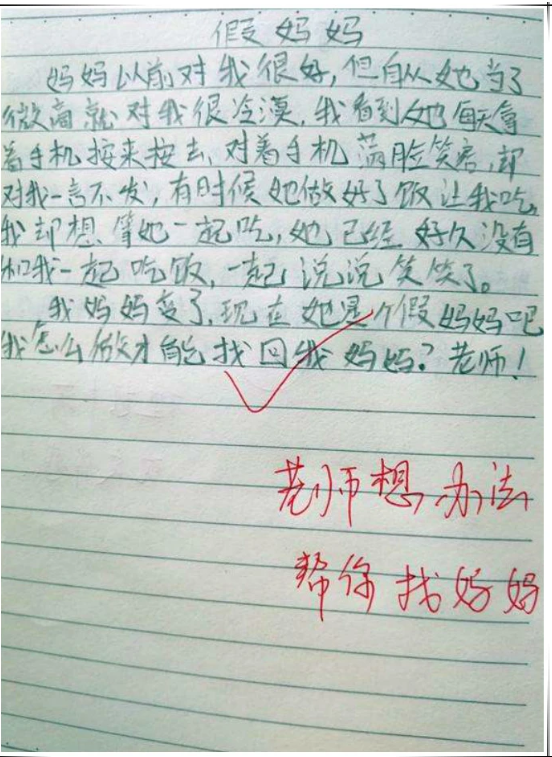 假妈妈
妈妈以前对我很好,但自从她当了
微商就对我很冷漠,我看到她每天拿
着手机按来按去,对着手机满脸笑容,却
对我一言不发,有时候她做好了饭让我吃,
我却想等她一起吃,她已经好久没有
和我一起吃饭,一起说说笑笑了。
我妈妈变了,现在她是个假妈妈吧
我怎么做才能找回我妈妈?老师!
老师想办法
帮你找妈妈